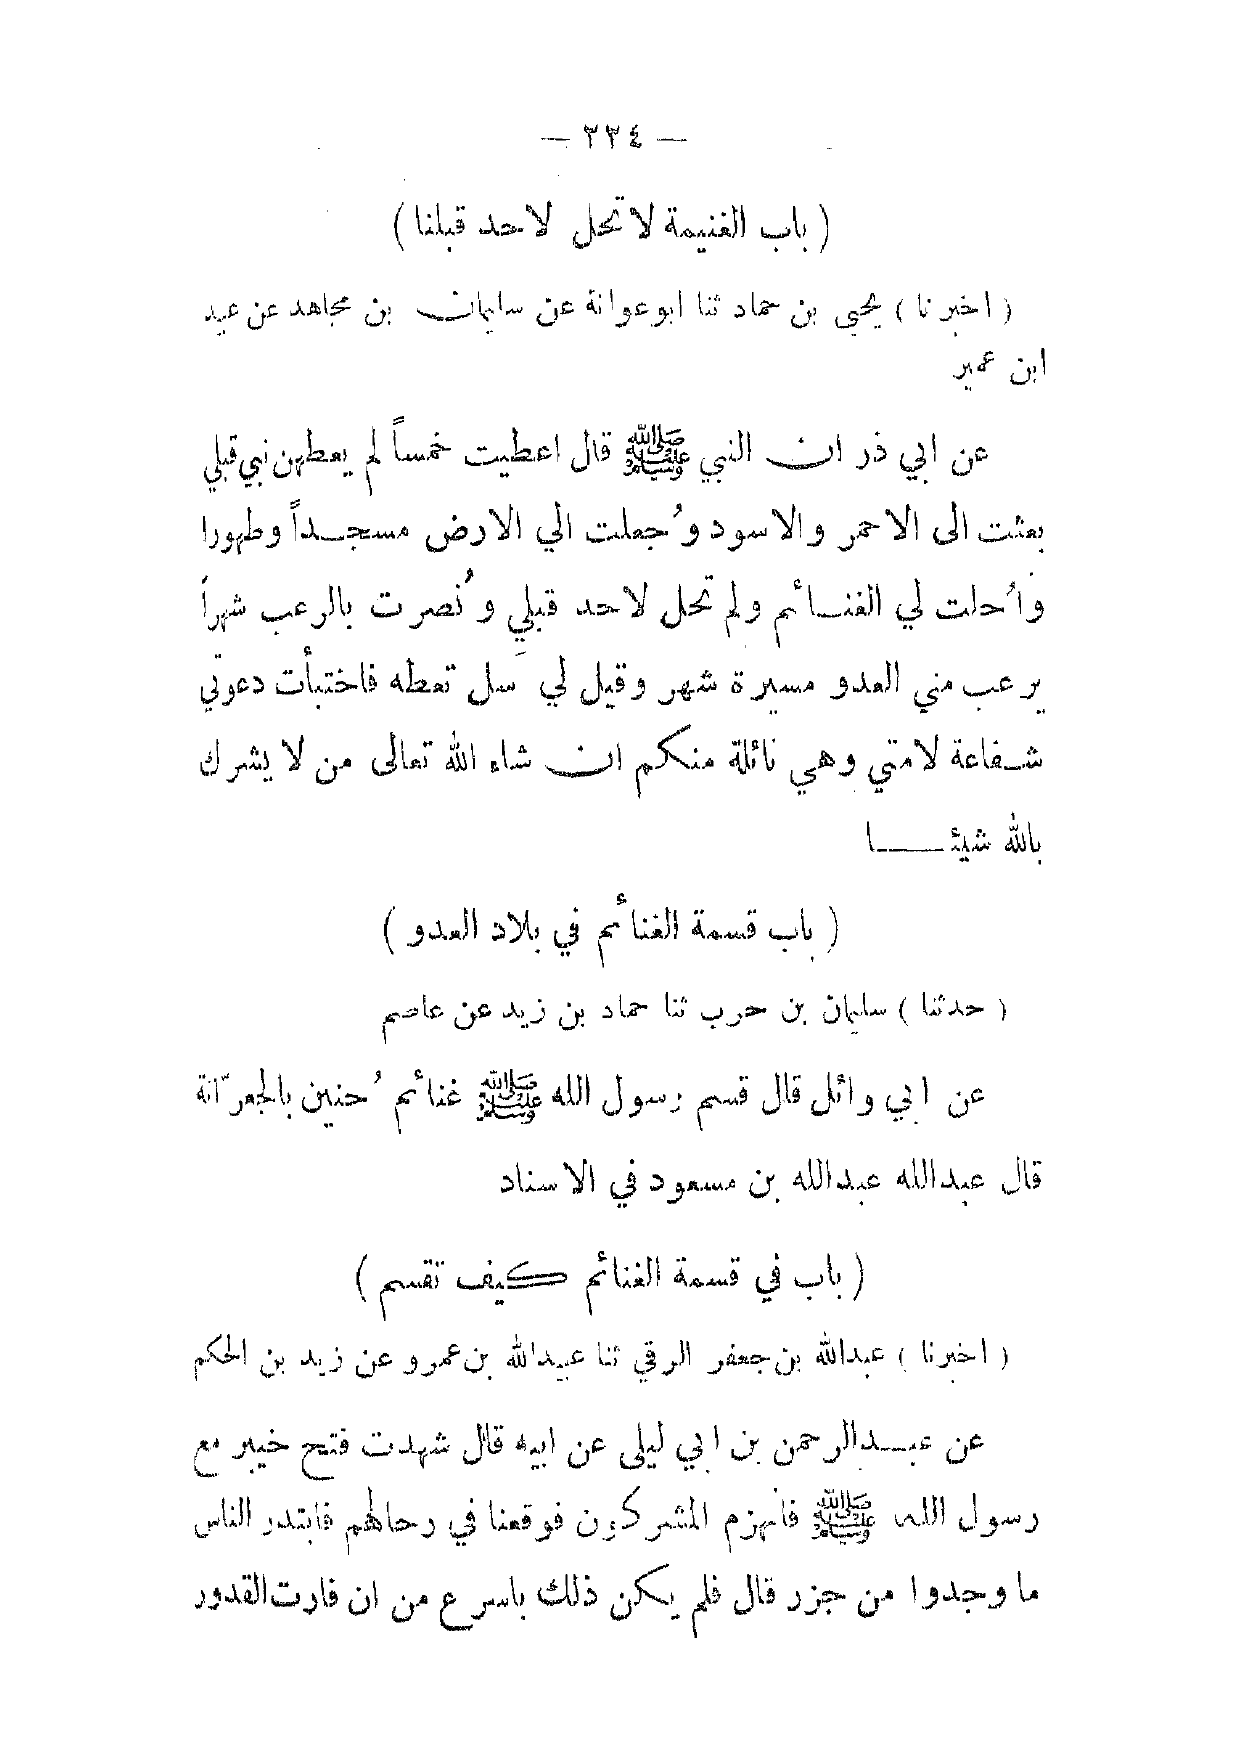 — ٢٢٤ —
( باب الغنيمة لا تحل لاحد قبلنا )
( اخبرنا ) يحيى بن حماد ثنا ابو عوانة عن سليمان بن مجاهد عن عبيد
ابن عمير
عن ابي ذر ان النبي ﷺ قال اعطيت خمساً لم يعطهن نبي قبلي
بعثت الى الاحمر والاسود وُجعلت الي الارض مسجداً وطهورا
واُحلت لي الغنائم ولم تحل لاحد قبلي وُنصرت بالرعب شهراً
يرعب مني العدو مسيرة شهر وقيل لي سل تعطه فاختبأت دعوتي
شفاعة لامتي وهي نائلة منكم ان شاء الله تعالى من لا يشرك
بالله شيئا
( باب قسمة الغنائم في بلاد العدو )
( حدثنا ) سليمان بن حرب ثنا حماد بن زيد عن عاصم
عن ابي وائل قال قسم رسول الله ﷺ غنائم ُحنين بالجعرّانة
قال عبدالله عبدالله بن مسعود في الاسناد
( باب في قسمة الغنائم كيف تقسم )
( اخبرنا ) عبدالله بن جعفر الرقي ثنا عبيدالله بن عمرو عن زيد بن الحكم
عن عبدالرحمن بن ابي ليلى عن ابيه قال شهدت فتح خيبر مع
رسول الله ﷺ فانهزم المشركون فوقعنا في رحالهم فابتدر الناس
ما وجدوا من جزر قال فلم يكن ذلك باسرع من ان فارت القدور